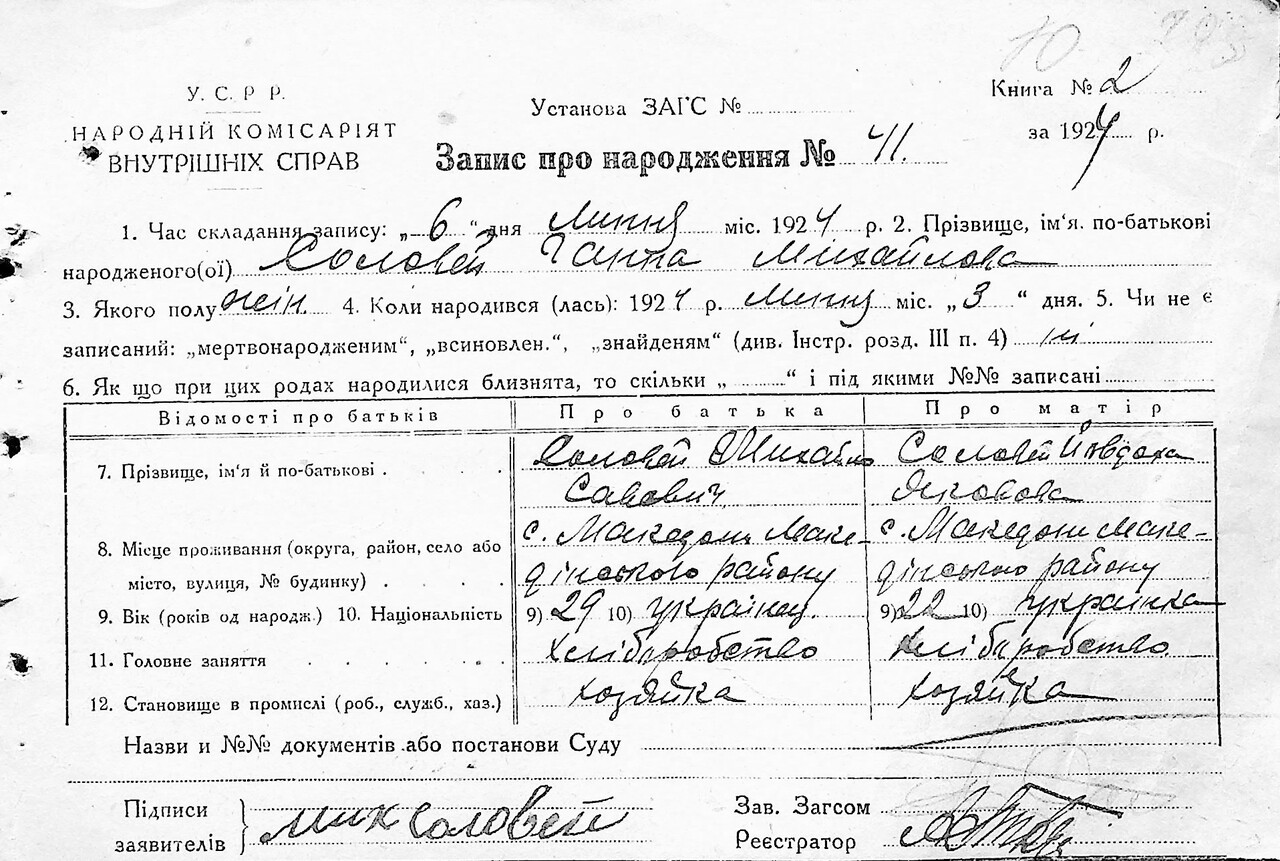 У. С. Р. Р.
НАРОДНІЙ КОМІСАРІЯТ
ВНУТРІШНІХ СПРАВ
Установа ЗАГС №
Книга № 2
за 1924 р.
Запис про народження № 41.
1. Час складання запису: „ 6 “ дня Липня міс. 1924 р. 2. Прізвище, ім'я. по-батькові
народженого(ої) Соловей Ганна Михайлова
3. Якого полу жін. 4. Коли народився (лась): 1924 р. Липня міс. „ 3 “ дня. 5. Чи не є
записаний: „мертвонародженим“, „всиновлен.“, „знайденям“ (див. Інстр. розд. III п. 4) ні
6. Як що при цих родах народилися близнята, то скільки „ “ і під якими №№ записані
Відомості про батьків Про батька Про матір
7. Прізвище, ім'я й по-батькові . Соловей Михайло Соловей Йовдоха
Савович, Яковова
8. Місце проживання (округа, район, село або с. Македони Маке- с. Македони Маке-
місто, вулиця, № будинку) . дінського району дінського району
9. Вік (років од народж.) 10. Національність 9) 29 10) українец 9) 22 10) украинка
11. Головне заняття Хліборобство Хліборобство
12. Становище в промислі (роб., служб., хаз.) хозяйка хозяйка
Назви и №№ документів або постанови Суду
Підписи
заявителів
мих Соловей
Зав. Загсом
Реєстратор